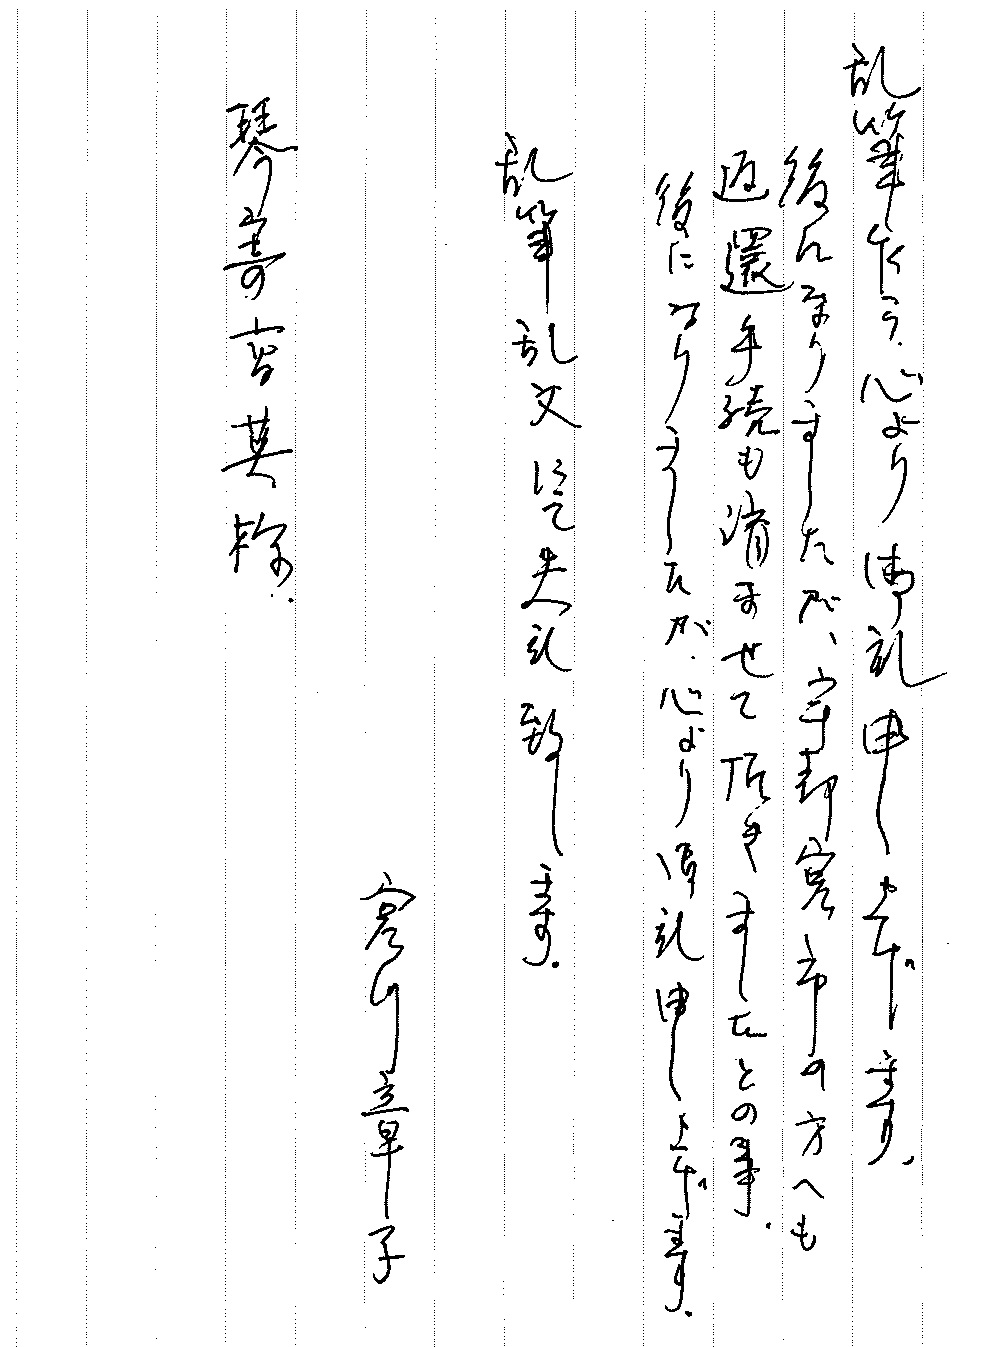 乱筆乍ら、心より御礼申し上げます。
後になりましたが、宇都宮市の方へも
返還手続も済ませて頂きましたとの事、
後になりましたが、心より御礼申し上げます。
乱筆乱文にて失礼致します。
宮川章子
琴寄宮英様